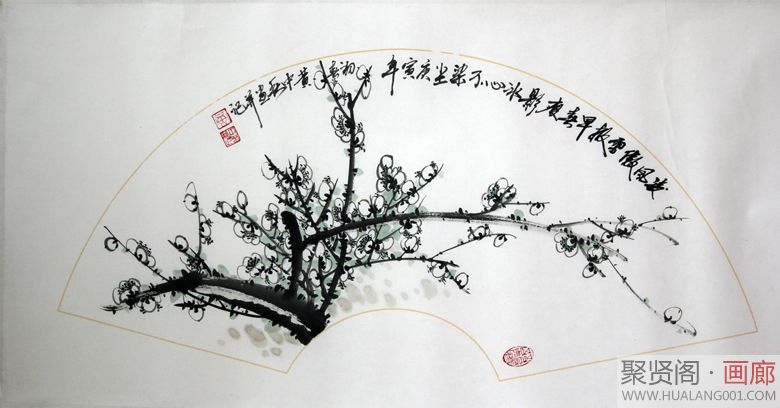 雪报早春 影冰心不染尘庚寅年
初春黄中 画并记
聚贤阁·画廊
WWW.HUALANG001.COM